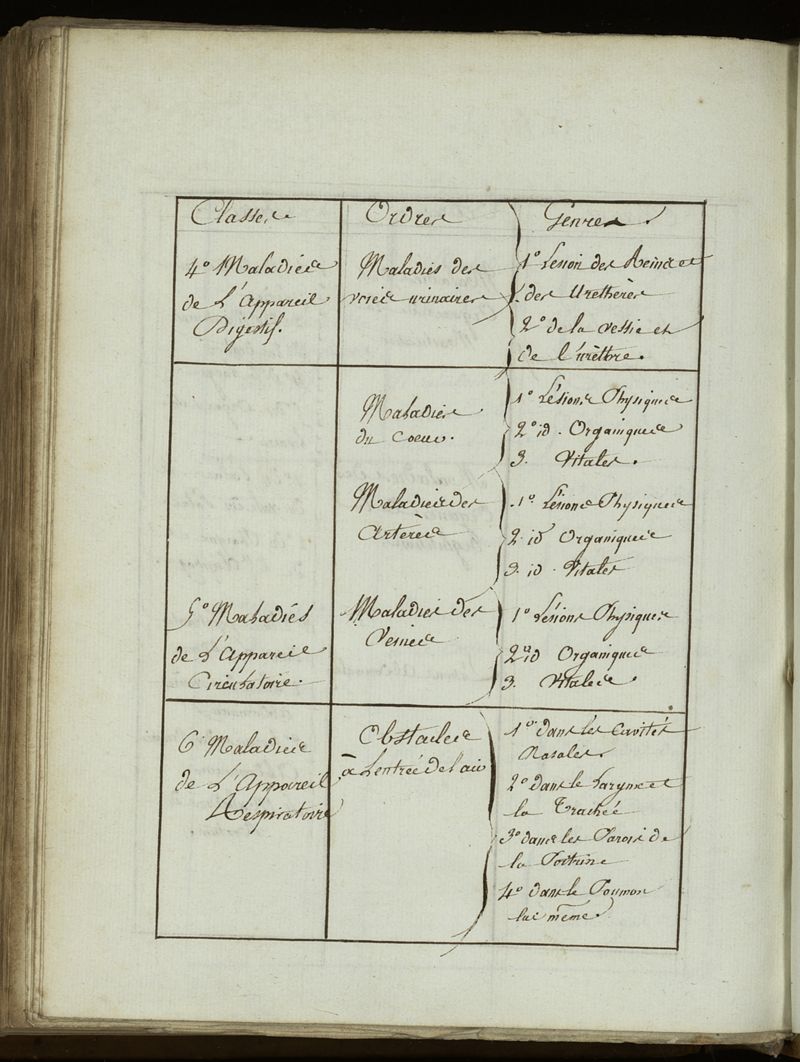 Classes
Ordres
Genres.
4° Maladies
de L'Appareil
Digestif.
Maladies des
voies urinaires
1° Lésion des Reins et
des Uréthères
2° de la vessie et
de l'urèthre.
5° Maladiés
de L'Appareil
Circulatoire.
Maladies
du Coeur.
1° Lésions Physiques
2° id. Organiques
3. Vitales.
Maladies des
Artères
1° Lésions Physiques
2. id Organiques
3. id. Vitales
Maladies des
Veines
1° Lésions Physiques
2° id Organiques
3. Vitales.
6° Maladies
de L'Appareil
Respiratoire
Obstacles
à L'entrée de l'air
1° dans les Cavités
Nasales.
2° dans le Larynx et
la Trachée
3° dans les Parois de
la Poitrine
4° dans le Poumon
lui même.